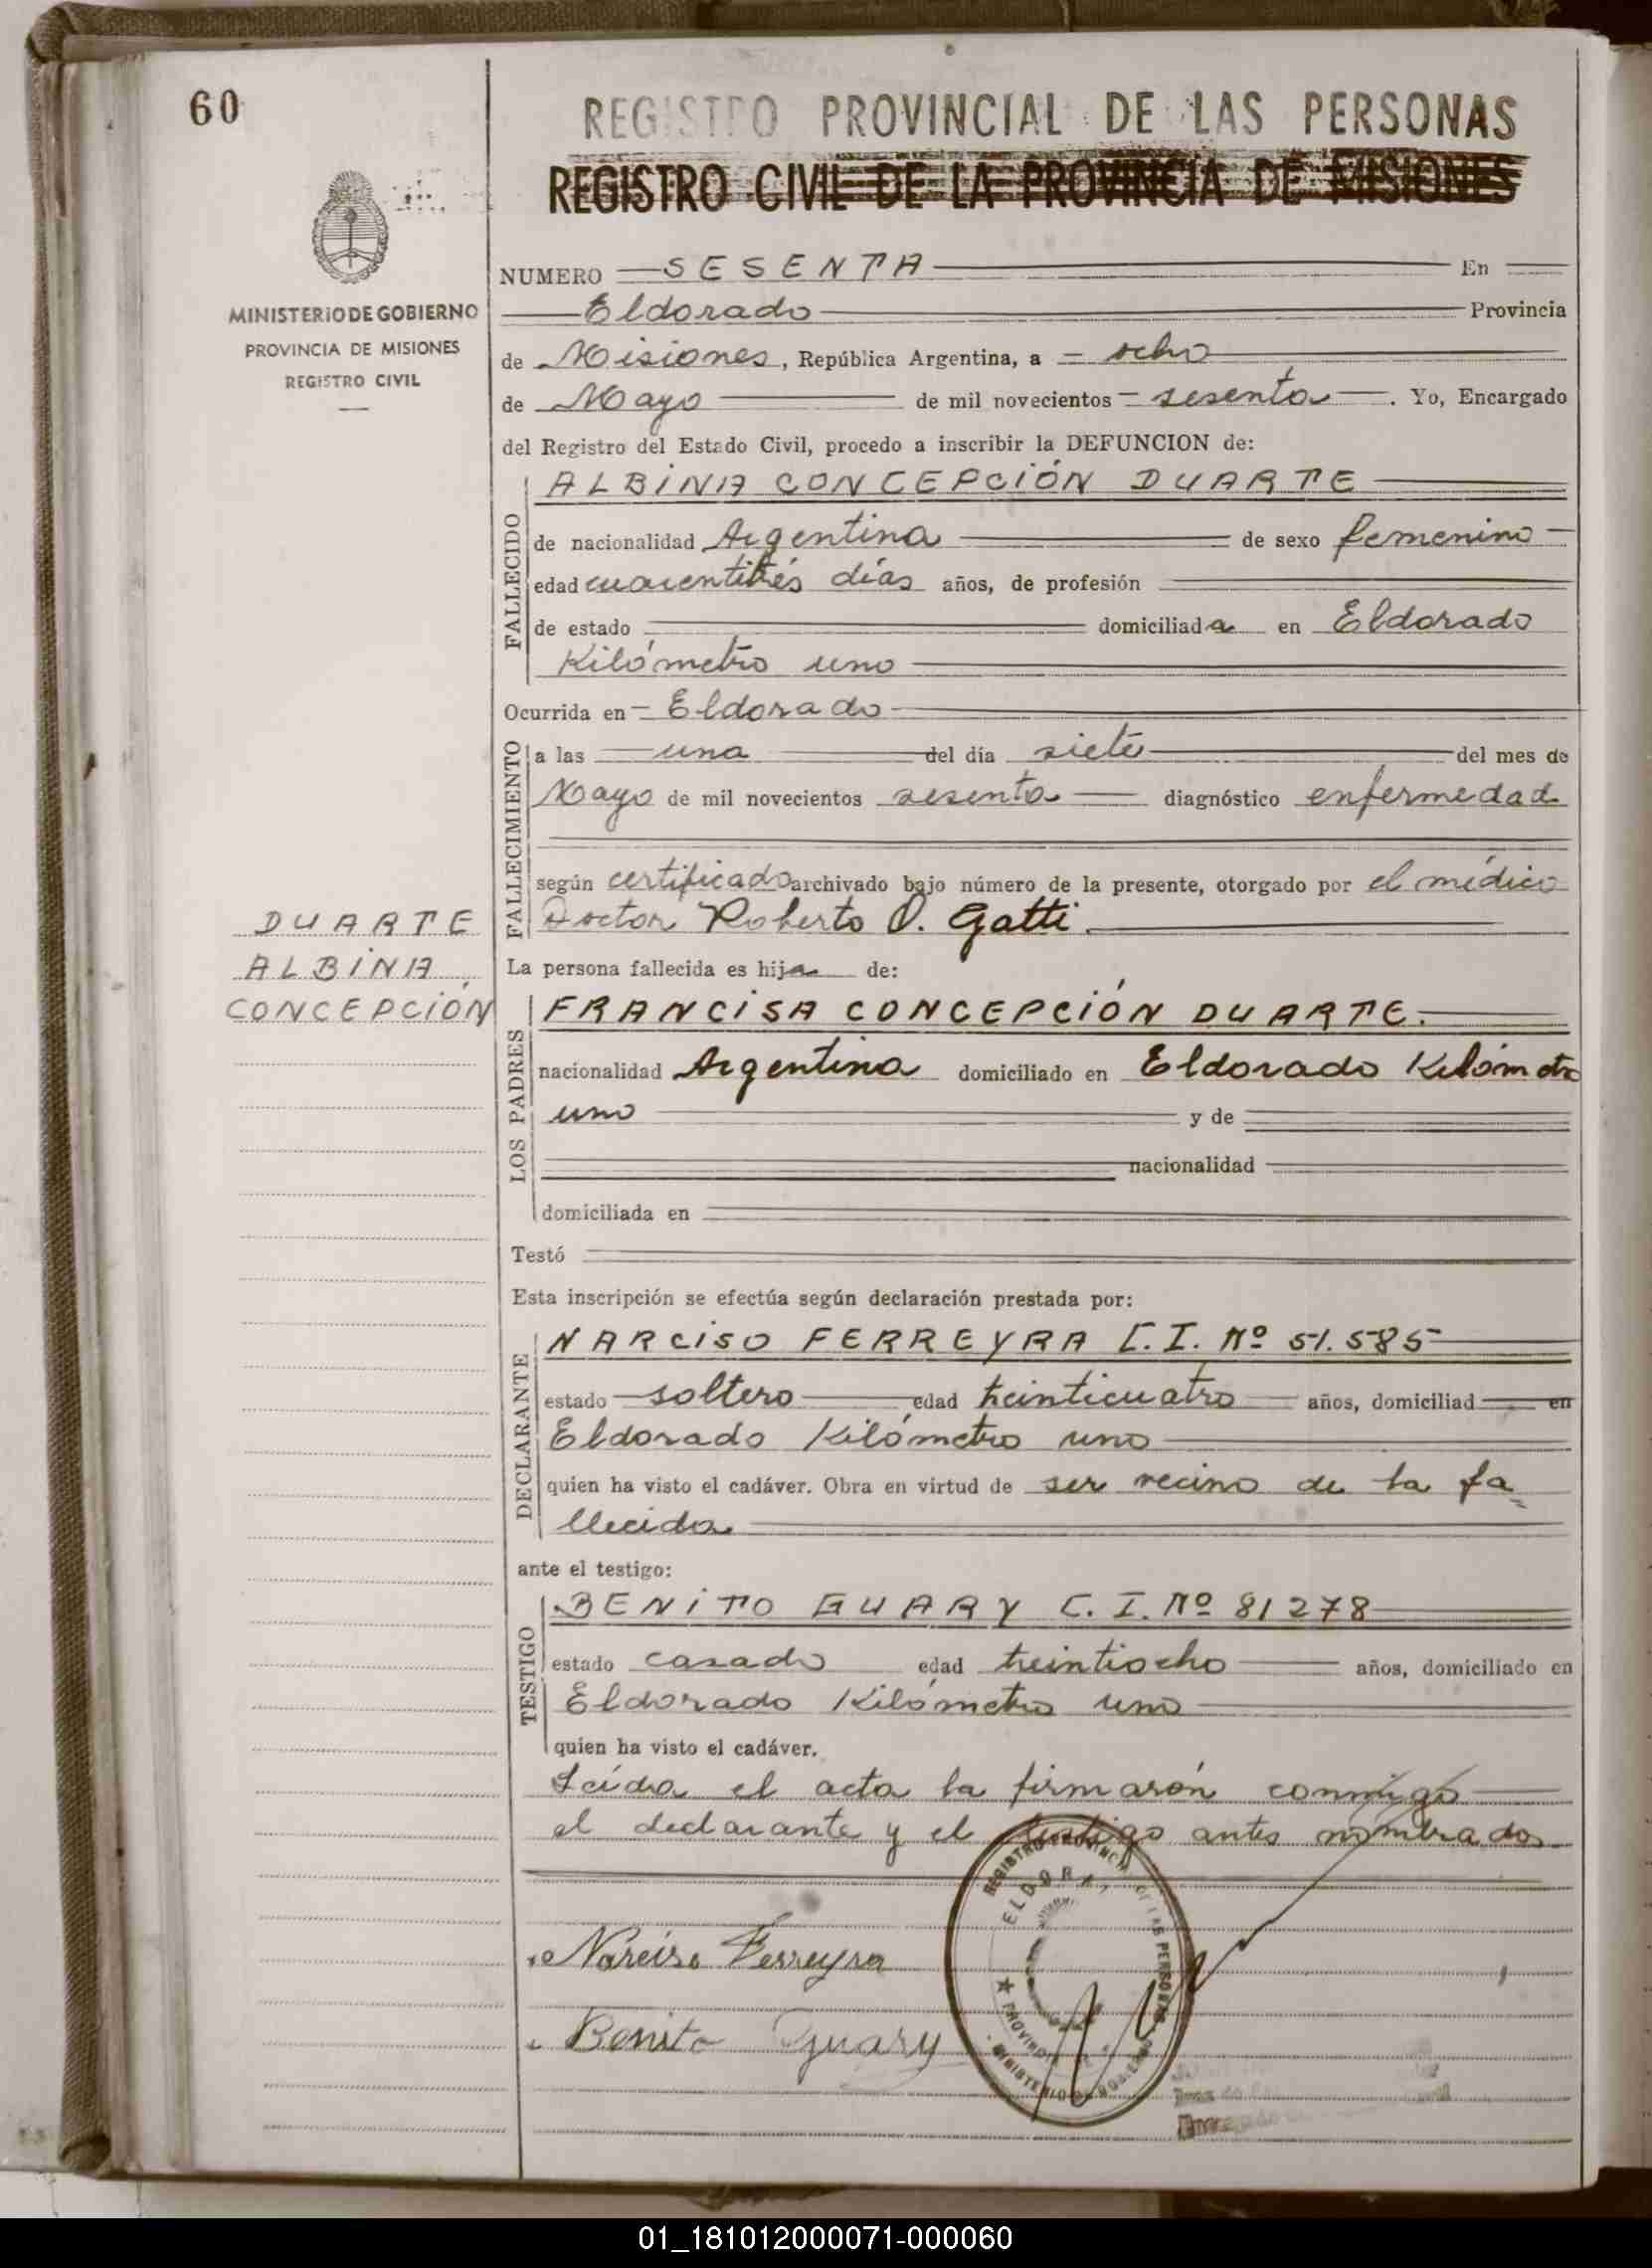 60
REGISTRO PROVINCIAL DE LAS PERSONAS
REGISTRO CIVIL DE LA PROVINCIA DE MISIONES
MINISTERIO DE GOBIERNO
PROVINCIA DE MISIONES
REGISTRO CIVIL
NUMERO SESENTA En
Eldorado Provincia
de Misiones, República Argentina, a ocho
de Mayo de mil novecientos sesenta. Yo, Encargado
del Registro del Estado Civil, procedo a inscribir la DEFUNCION de:
FALLECIDO
ALBINA CONCEPCIÓN DUARTE
de nacionalidad Argentina de sexo femenino
edad cuarentitrés días años, de profesión
de estado domiciliada en Eldorado
Kilómetro uno
Ocurrida en Eldorado
FALLECIMIENTO
a las una del día siete del mes de
Mayo de mil novecientos sesenta diagnóstico enfermedad
según certificado archivado bajo número de la presente, otorgado por el médico
Doctor Roberto O. Gatti.
DUARTE
ALBINA
CONCEPCIÓN
La persona fallecida es hija de:
LOS PADRES
FRANCISA CONCEPCIÓN DUARTE.
nacionalidad Argentina domiciliado en Eldorado Kilómetro
uno y de
nacionalidad
domiciliada en
Testó
Esta inscripción se efectúa según declaración prestada por:
DECLARANTE
NARCISO FERREYRA C.I. Nº 51.585
estado soltero edad treinticuatro años, domiciliad en
Eldorado Kilómetro uno
quien ha visto el cadáver. Obra en virtud de ser vecino de la fa-
llecida
ante el testigo:
TESTIGO
BENITO GUARY C.I. Nº 81278
estado casado edad treintiocho años, domiciliado en
Eldorado Kilómetro uno
quien ha visto el cadáver.
Leída el acta la firmarón conmigo
el declarante y el testigo antes nombrados
Narciso Ferreyra
Benito Guary
REGISTRO PROVINCIAL DE LAS PERSONAS
ELDORADO
MINISTERIO DE GOBIERNO
01_181012000071-000060